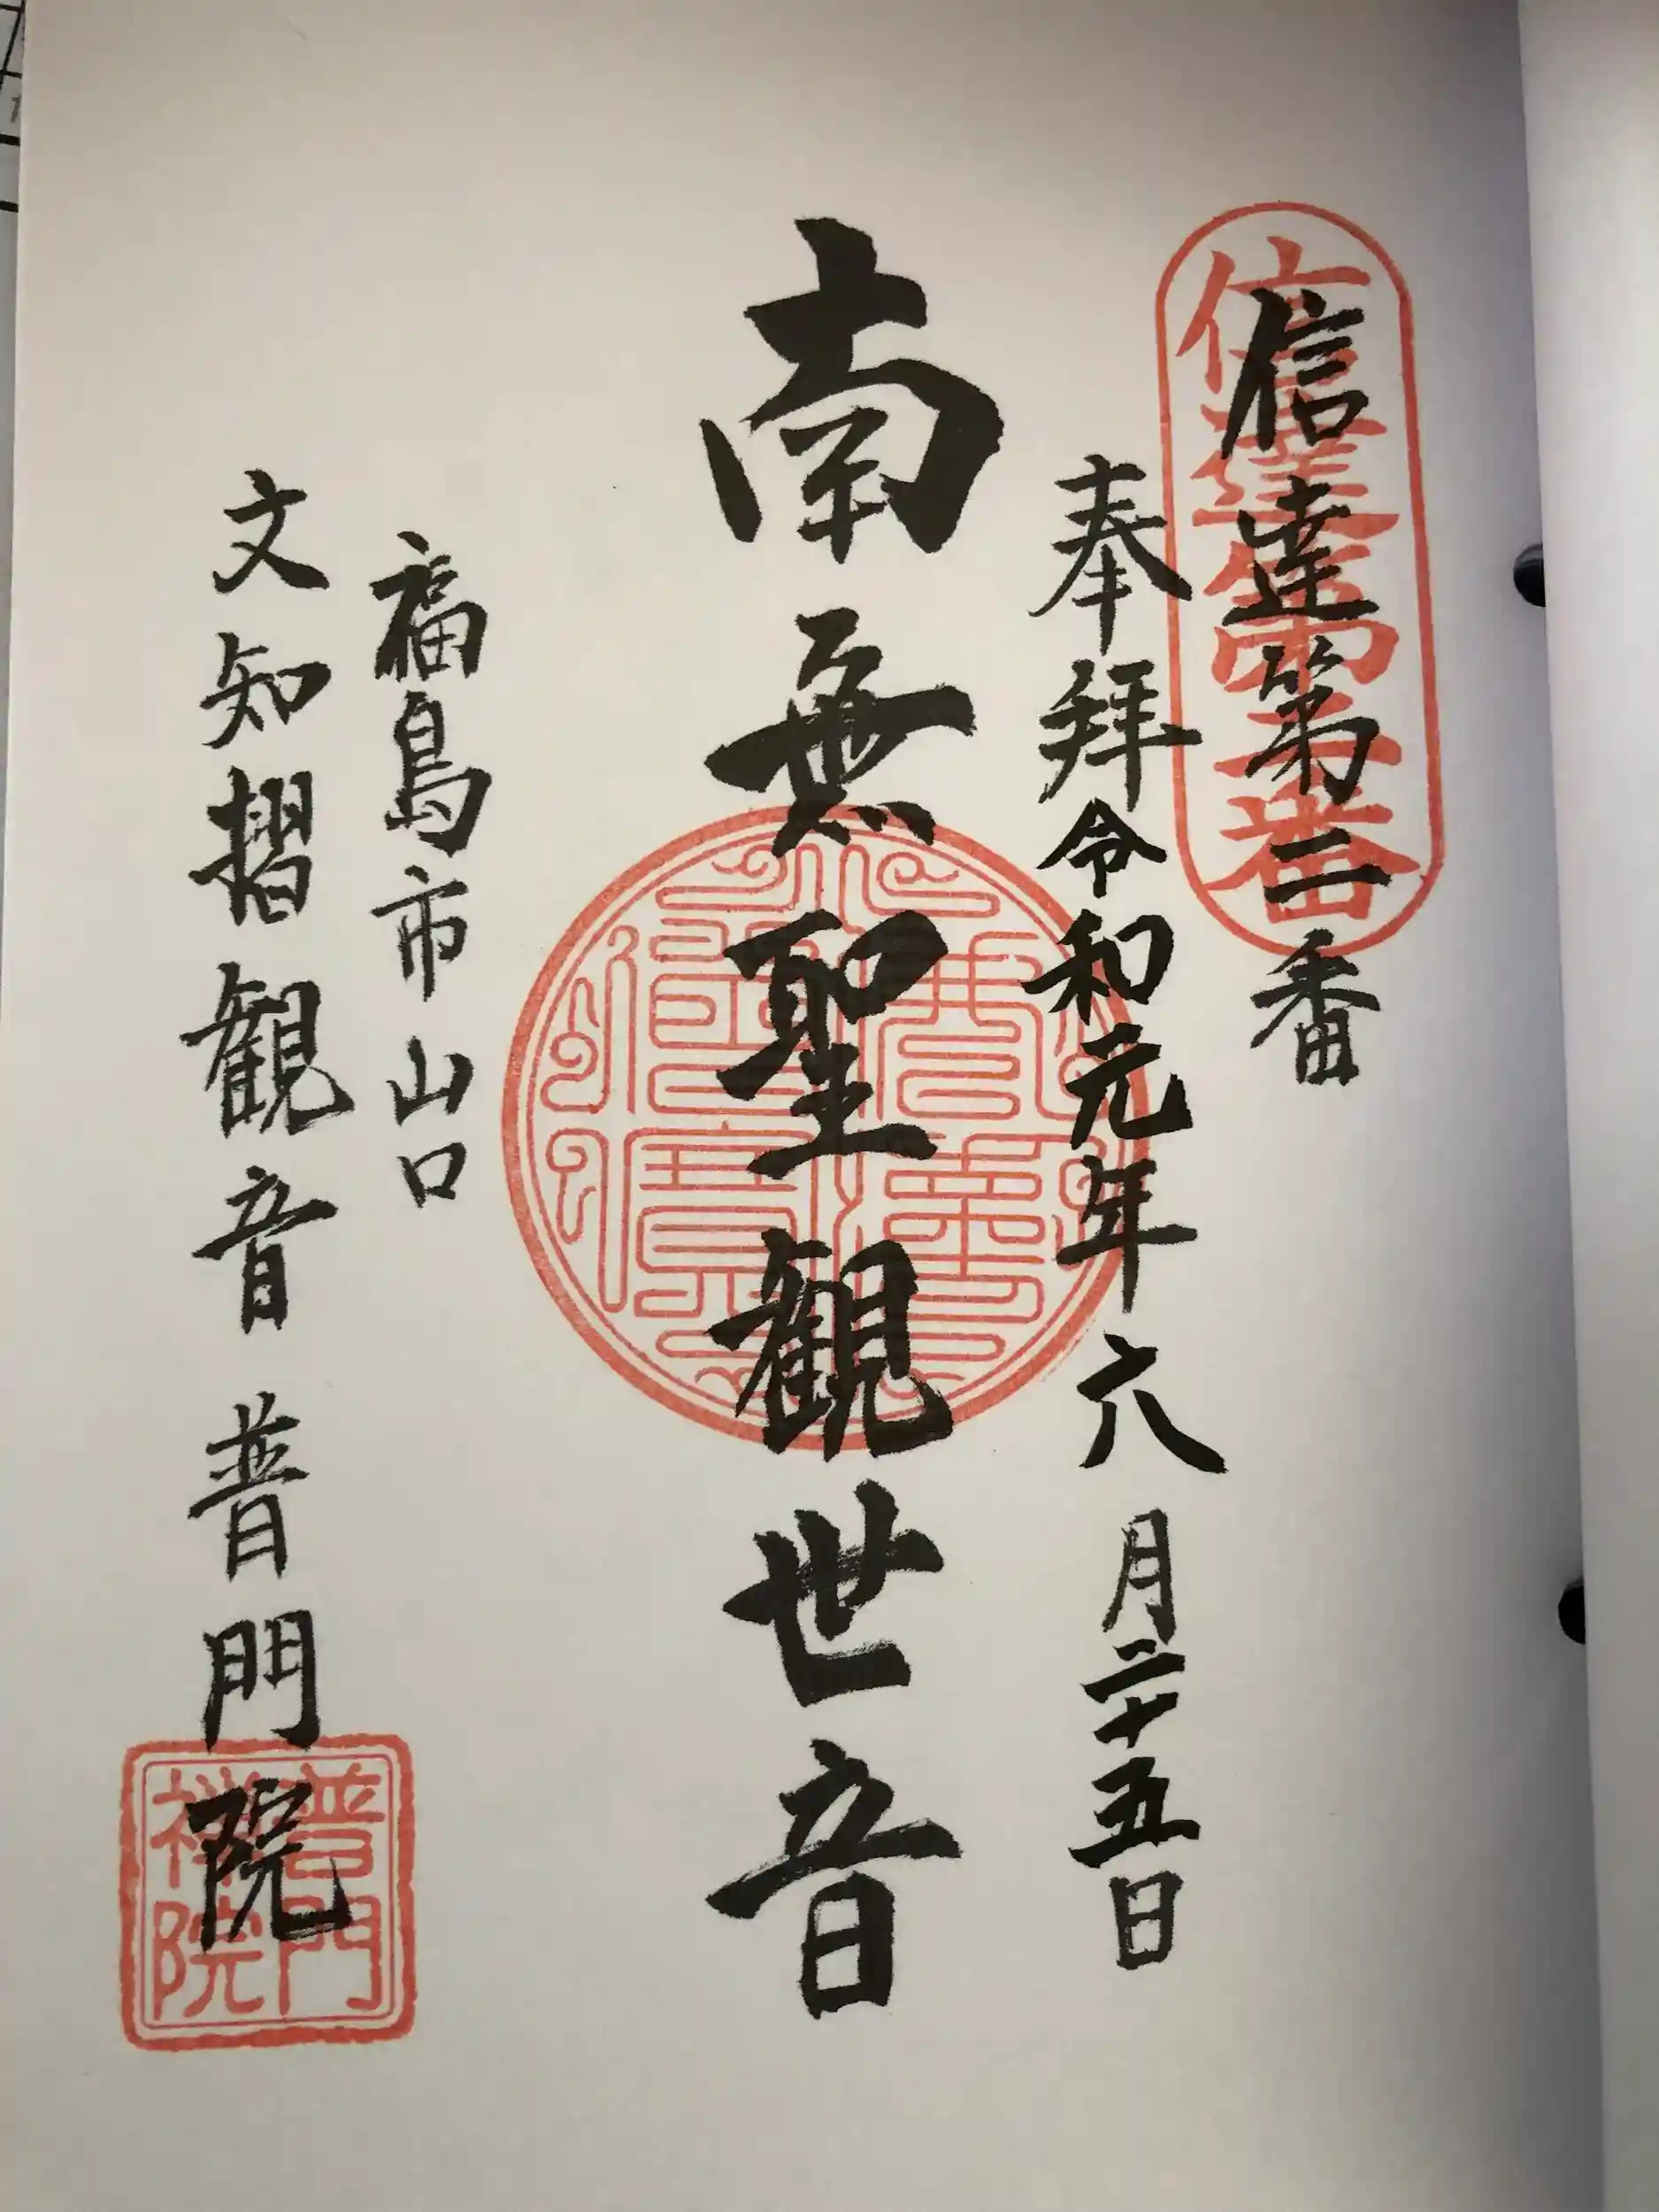 信達第二番
信達第二番
奉拝令和元年六月二十五日
南無聖観世音
福島市山口
文知摺観音普門院
普門
禅院